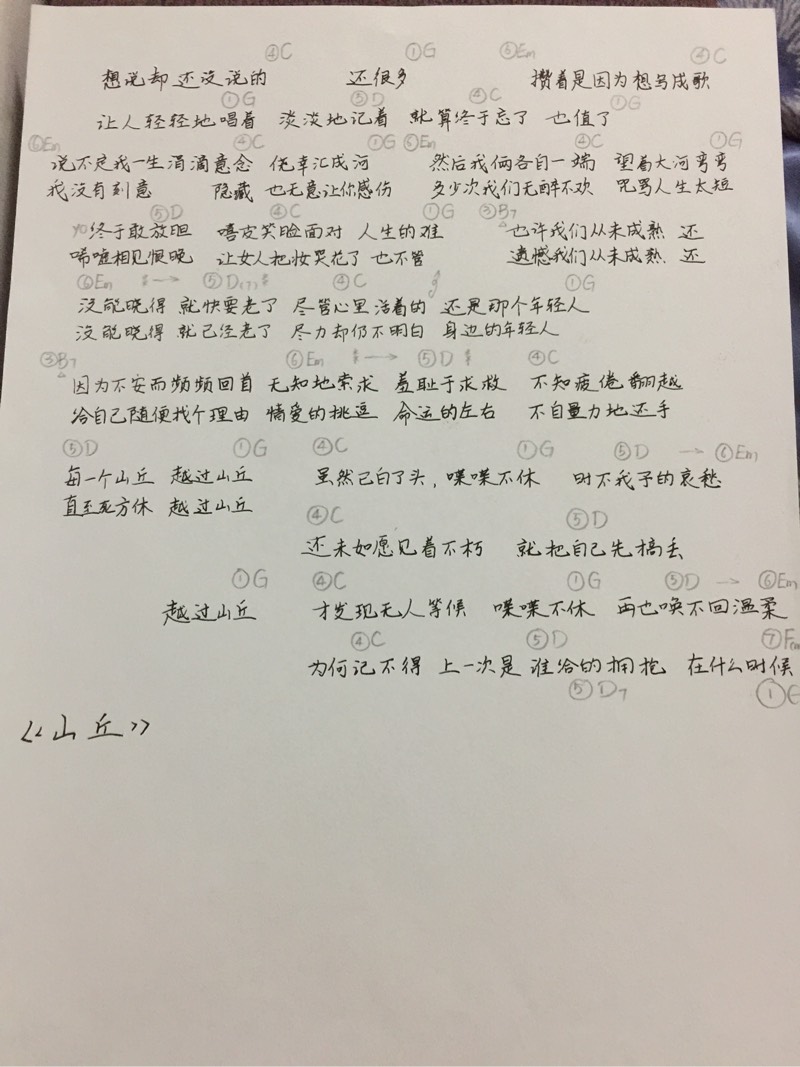 ④C ①G ⑥Em ④C
想说却还没说的 还很多 攒着是因为想写成歌
①G ⑤D ④C ①G
让人轻轻地唱着 淡淡地记着 就算终于忘了 也值了
⑥Em ④C ①G ⑥Em ④C ①G
说不定我一生涓滴意念 侥幸汇成河 然后我俩各自一端 望着大河弯弯
我没有刻意 隐藏 也无意让你感伤 多少次我们无醉不欢 咒骂人生太短
⑤D ④C ①G ③B7
终于敢放胆 嘻皮笑脸面对 人生的难 也许我们从未成熟 还
唏嘘相见恨晚 让女人把妆哭花了 也不管 遗憾我们从未成熟 还
⑥Em → ⑤D(7) ④C ①G
没能晓得 就快要老了 尽管心里活着的 还是那个年轻人
没能晓得 就已经老了 尽力却仍不明白 身边的年轻人
③B7 ⑥Em → ⑤D ④C
因为不安而频频回首 无知地索求 羞耻于求救 不知疲倦翻越
给自己随便找个理由 情爱的挑逗 命运的左右 不自量力地还手
⑤D ①G ④C ①G ⑤D → ⑥Em
每一个山丘 越过山丘 虽然已白了头，喋喋不休 时不我予的哀愁
直至死方休 越过山丘
④C ⑤D
还未如愿见着不朽 就把自己先搞丢
①G ④C ①G ⑤D → ⑥Em
越过山丘 才发现无人等候 喋喋不休 再也唤不回温柔
④C ⑤D ⑦F
为何记不得 上一次是谁给的拥抱 在什么时候
⑤D7 ①G
《山丘》